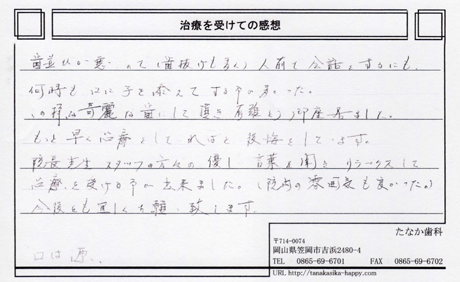 治療を受けての感想
歯並びが悪いので(歯抜けも多く)人前で会話をするにも、
何時も口に手を添えてする事が多かった。
この様な奇麗な歯にして頂き有難とう御座居ました。
もっと早く治療をしておればと後悔をしています。
院長先生 スタッフの方々の優しい言葉を聞きリラックスして
治療を受ける事が出来ました。(院内の雰囲気も良かった。)
今後とも宜しくお願い致します。
たなか歯科
〒714-0074
岡山県笠岡市吉浜2480-4
TEL 0865-69-6701 FAX 0865-69-6702
URL http://tanakasika-happy.com